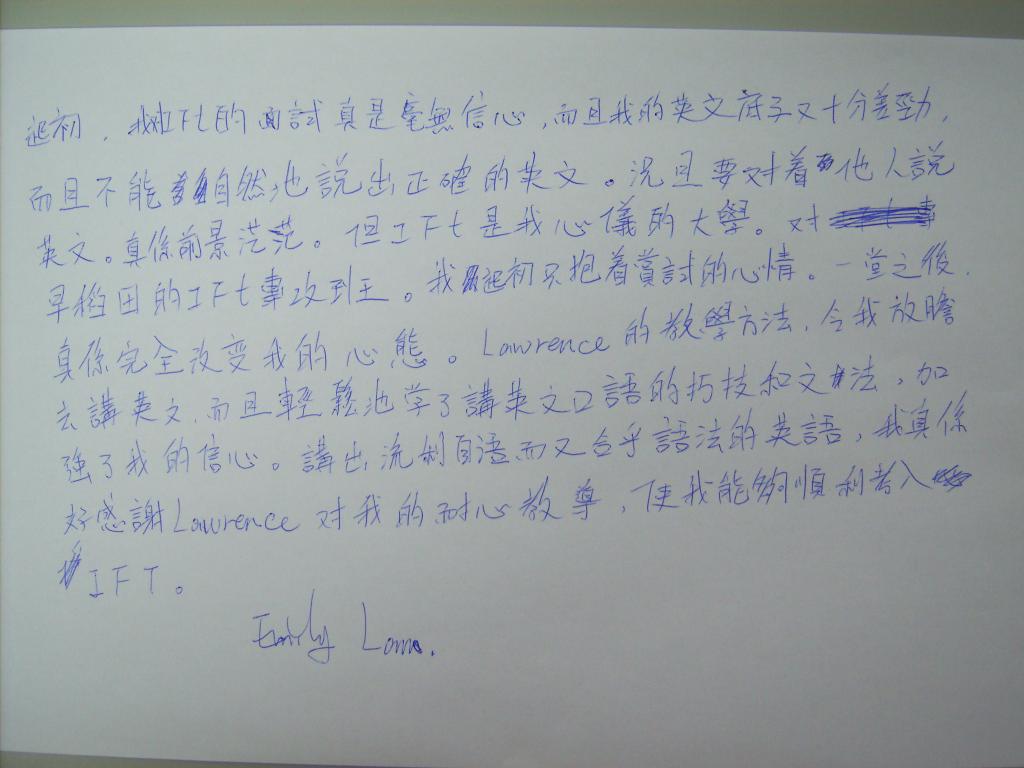 起初，我对IFt的面試真是毫無信心，而且我的英文底子又十分差勁，
而且不能自然地說出正確的英文。況且要对着他人說
英文。真係前景茫茫。但IFt是我心儀的大學。对
早稻田的IFt專攻班王。我起初只抱着嘗試的心情。一堂之後，
真係完全改变我的心態。Lawrence的教學方法，令我放膽
去講英文，而且輕鬆地学了講英文口語的技巧和文法，加
強了我的信心。講出流利自语而又合乎語法的英語，我真係
好感謝Lawrence对我的耐心教導，使我能夠順利考入
IFT。
Emily